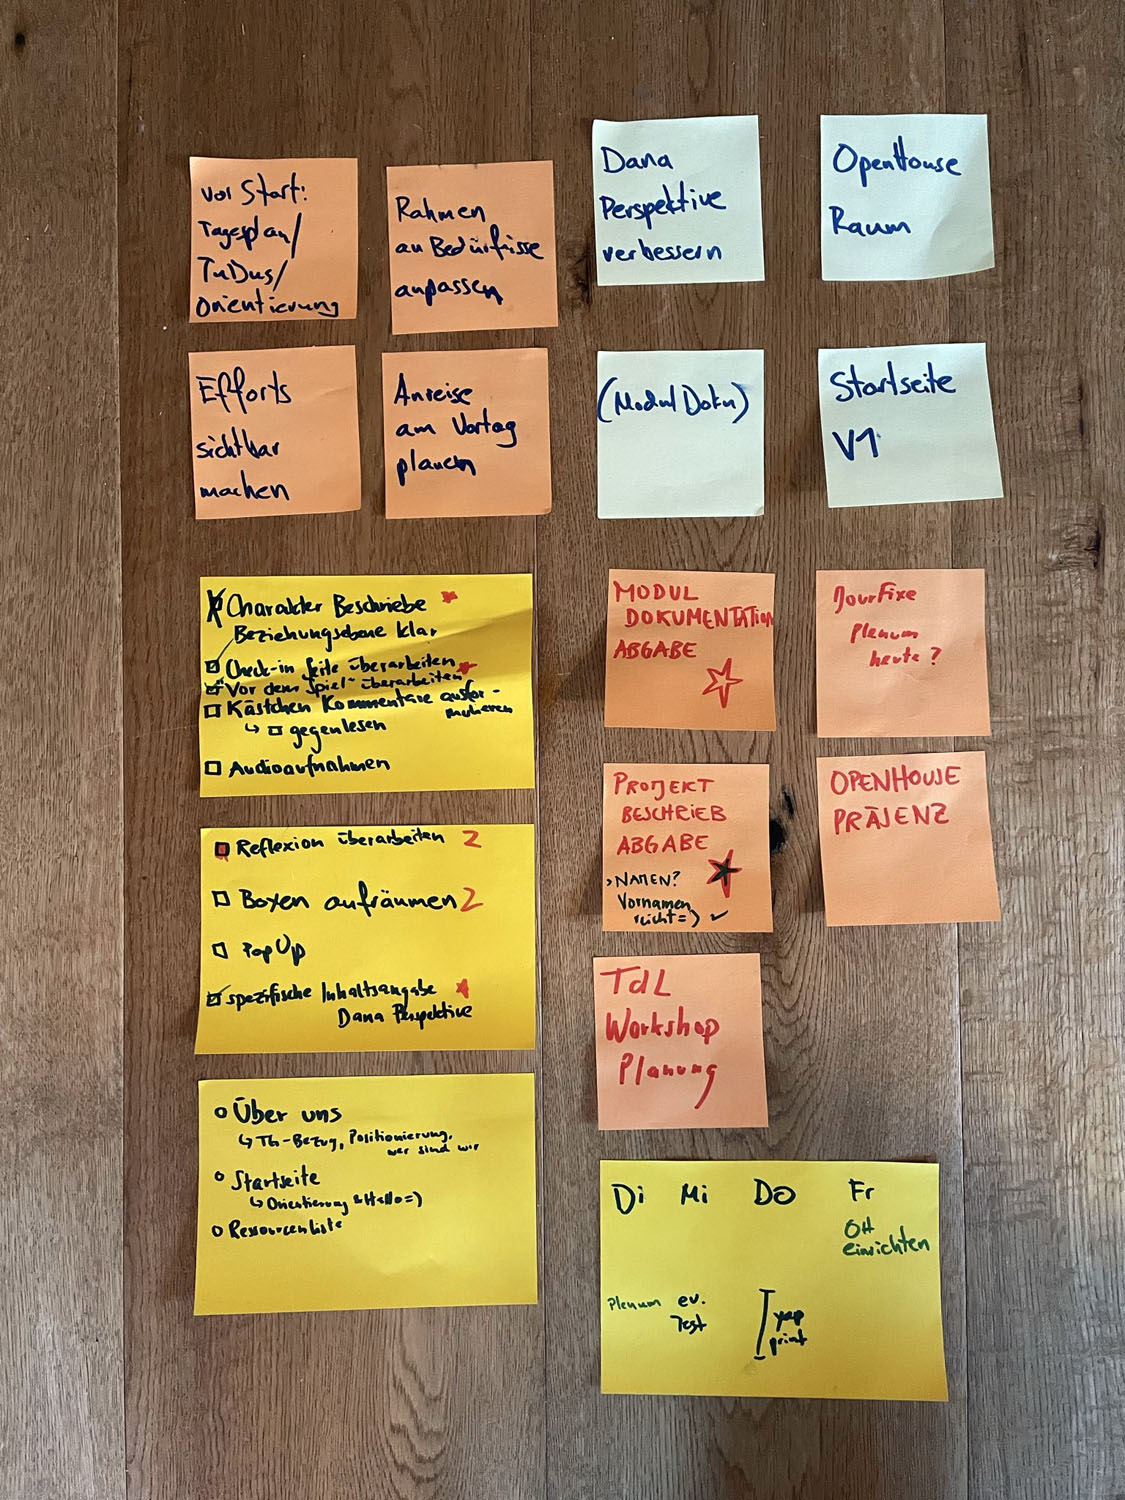 vor Start:
Tagesplan/
TuDus/
Orientierung
Rahmen
an Bedürfnisse
anpassen
Dana
Perspektive
verbessern
OpenHouse
Raum
Efforts
sichtbar
machen
Anreise
am Vortag
planen
(Modul Doku)
Startseite
V1
Charakter Beschriebe
Beziehungsebene klar
Check-in Seite überarbeiten
"Vor dem Spiel" überarbeiten
Kästchen Kommentare ausfor-
mulieren
↳ □ gegenlesen
Audioaufnahmen
Reflexion überarbeiten 2
Boxen aufräumen 2
PopUp
spezifische Inhaltsangabe
Dana Perspektive
Über uns
↳ Th-Bezug, Positionierung,
wer sind wir
Startseite
↳ Orientierung & Hallo=)
Ressourcenliste
MODUL
DOKUMENTATION
ABGABE
JourFixe
plenum
heute?
PROJEKT
BESCHRIEB
ABGABE
> NAMEN?
Vornamen
reicht=) ✓
OPENHOUSE
PRÄSENZ
TdL
Workshop
Planung
Di Mi Do Fr
OH
einrichten
Plenum ev.
Test
yep
print